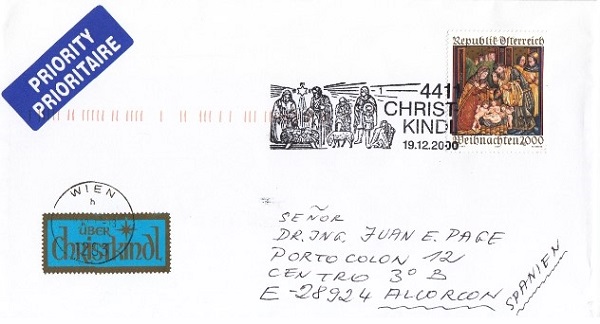 PRIORITY
PRIORITAIRE
Republik Österreich
Weihnachten 2000
4411
CHRIST-
KINDL
19.12.2000
WIEN
h
ÜBER
Christkindl
SEÑOR
DR. ING. JUAN E. PAGE
PORTOCOLON 12
CENTRO 3º B
E-28924 ALCORCON
SPANIEN